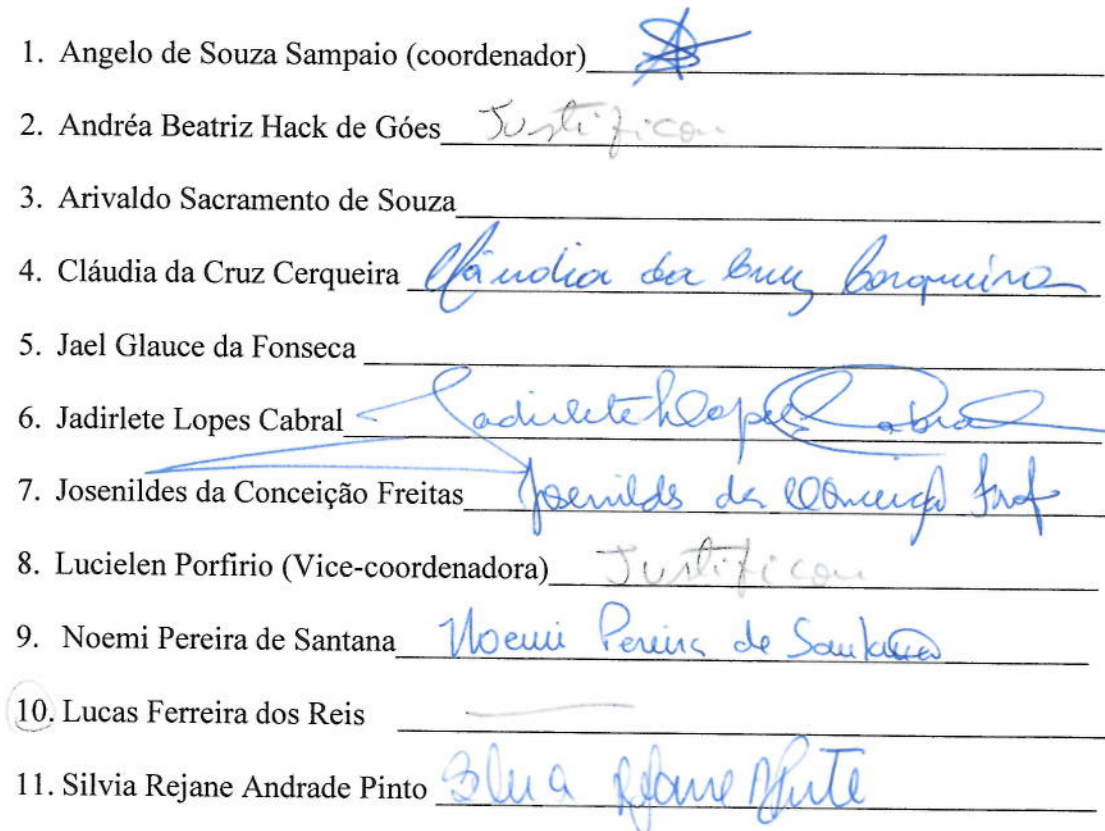 1. Angelo de Souza Sampaio (coordenador)
2. Andréa Beatriz Hack de Góes Justificou
3. Arivaldo Sacramento de Souza
4. Cláudia da Cruz Cerqueira Cláudia da Cruz Cerqueira
5. Jael Glauce da Fonseca
6. Jadirlete Lopes Cabral Jadirlete Lopes Cabral
7. Josenildes da Conceição Freitas Josenildes da Conceição
8. Lucielen Porfirio (Vice-coordenadora) Justificou
9. Noemi Pereira de Santana Noemi Pereira de Santana
10. Lucas Ferreira dos Reis
11. Silvia Rejane Andrade Pinto Silvia Rejane